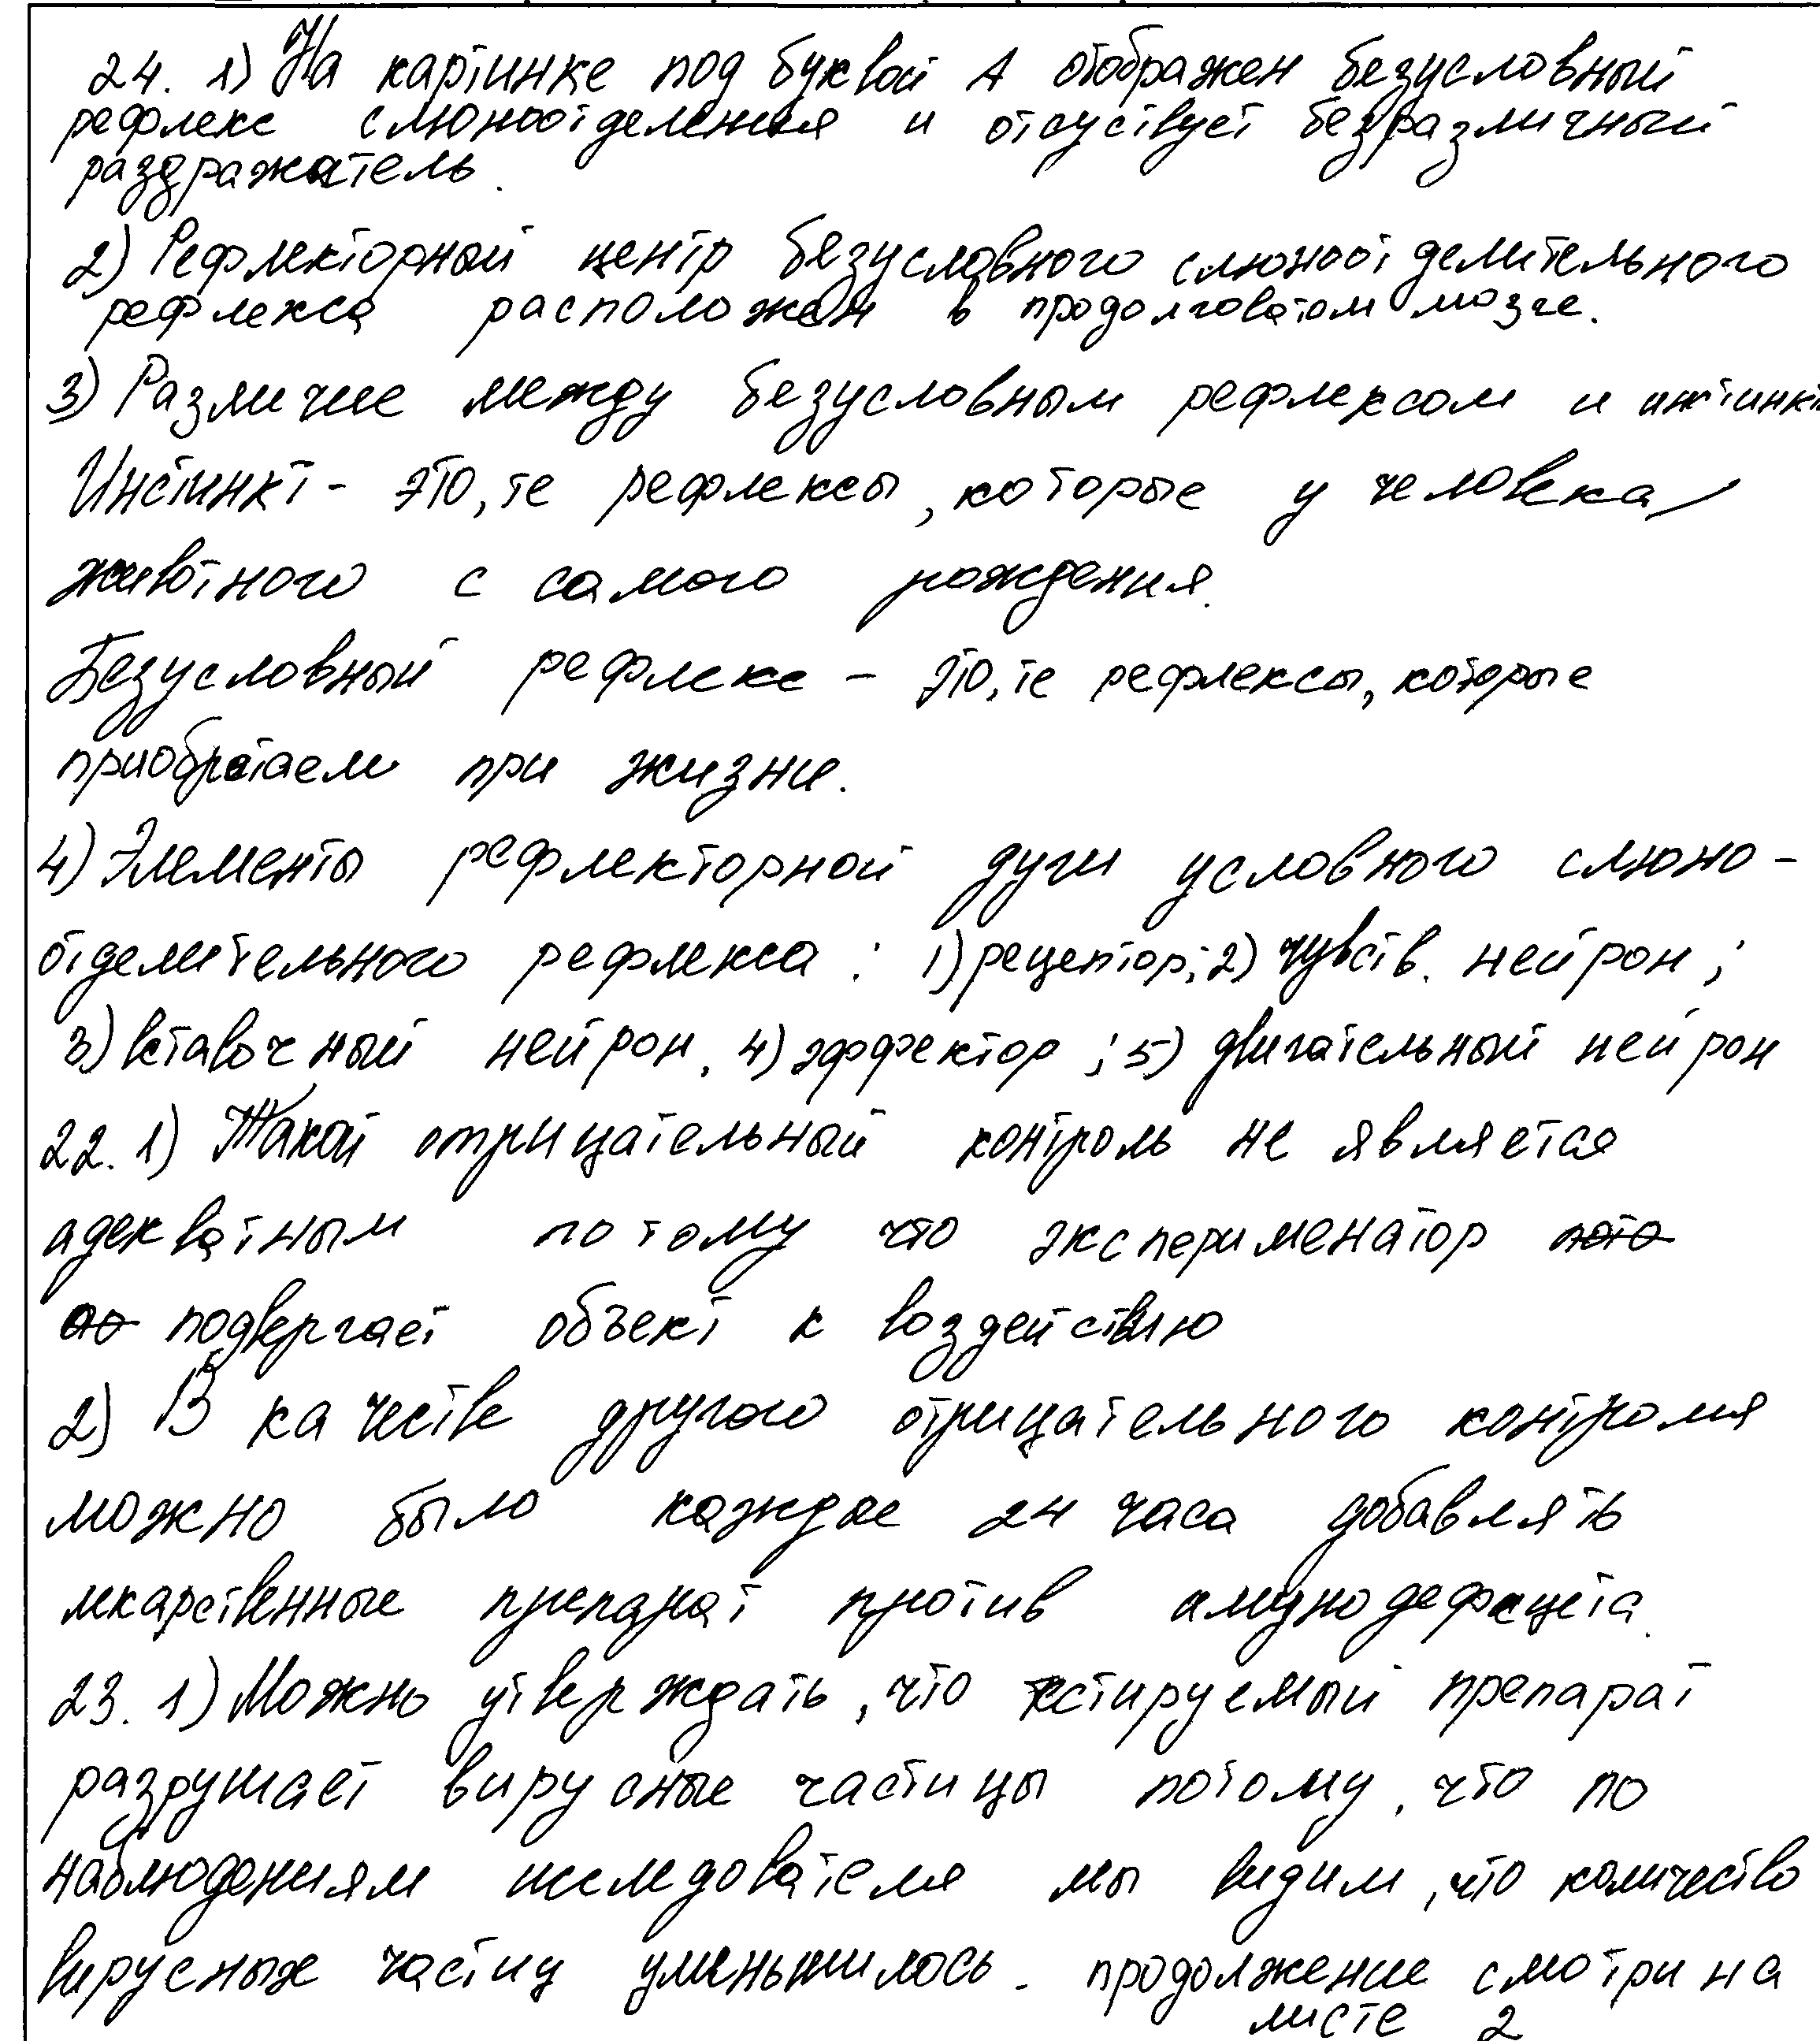 24. 1) На картинке под буквой А отображен безусловный
рефлекс слюноотделения и отсуствует безразличный
раздражатель.
2) Рефлекторный центр безусловного слюноотделительного
рефлекса расположен в продолговатом мозге.
3) Различие между безусловным рефлексом и инстинкт
Инстинкт - это, те рефлексы, которые у человека/
животного с самого рождения.
Безусловный рефлекс - это, те рефлексы, которые
приобретаем при жизни.
4) Элементы рефлекторной дуги условного слюно-
отделительного рефлекса: 1) рецептор; 2) чувств. нейрон;
3) вставочный нейрон, 4) эффектор; 5) двигательный нейрон
22. 1) Такой отрицательный контроль не является
адекватным потому что эксперименатор пото
подвергает объект к воздействию
2) В качестве другого отрицательного контроля
можно было каждые 24 часа добавлять
лекарственные препарат против имунодефицета.
23. 1) Можно утверждать, что тестируемый препарат
разрушает вирусные частицы потому, что по
наблюдениям исследователя мы видим, что количество
вирусных частиц уменьшилось. продолжение смотри на
листе 2